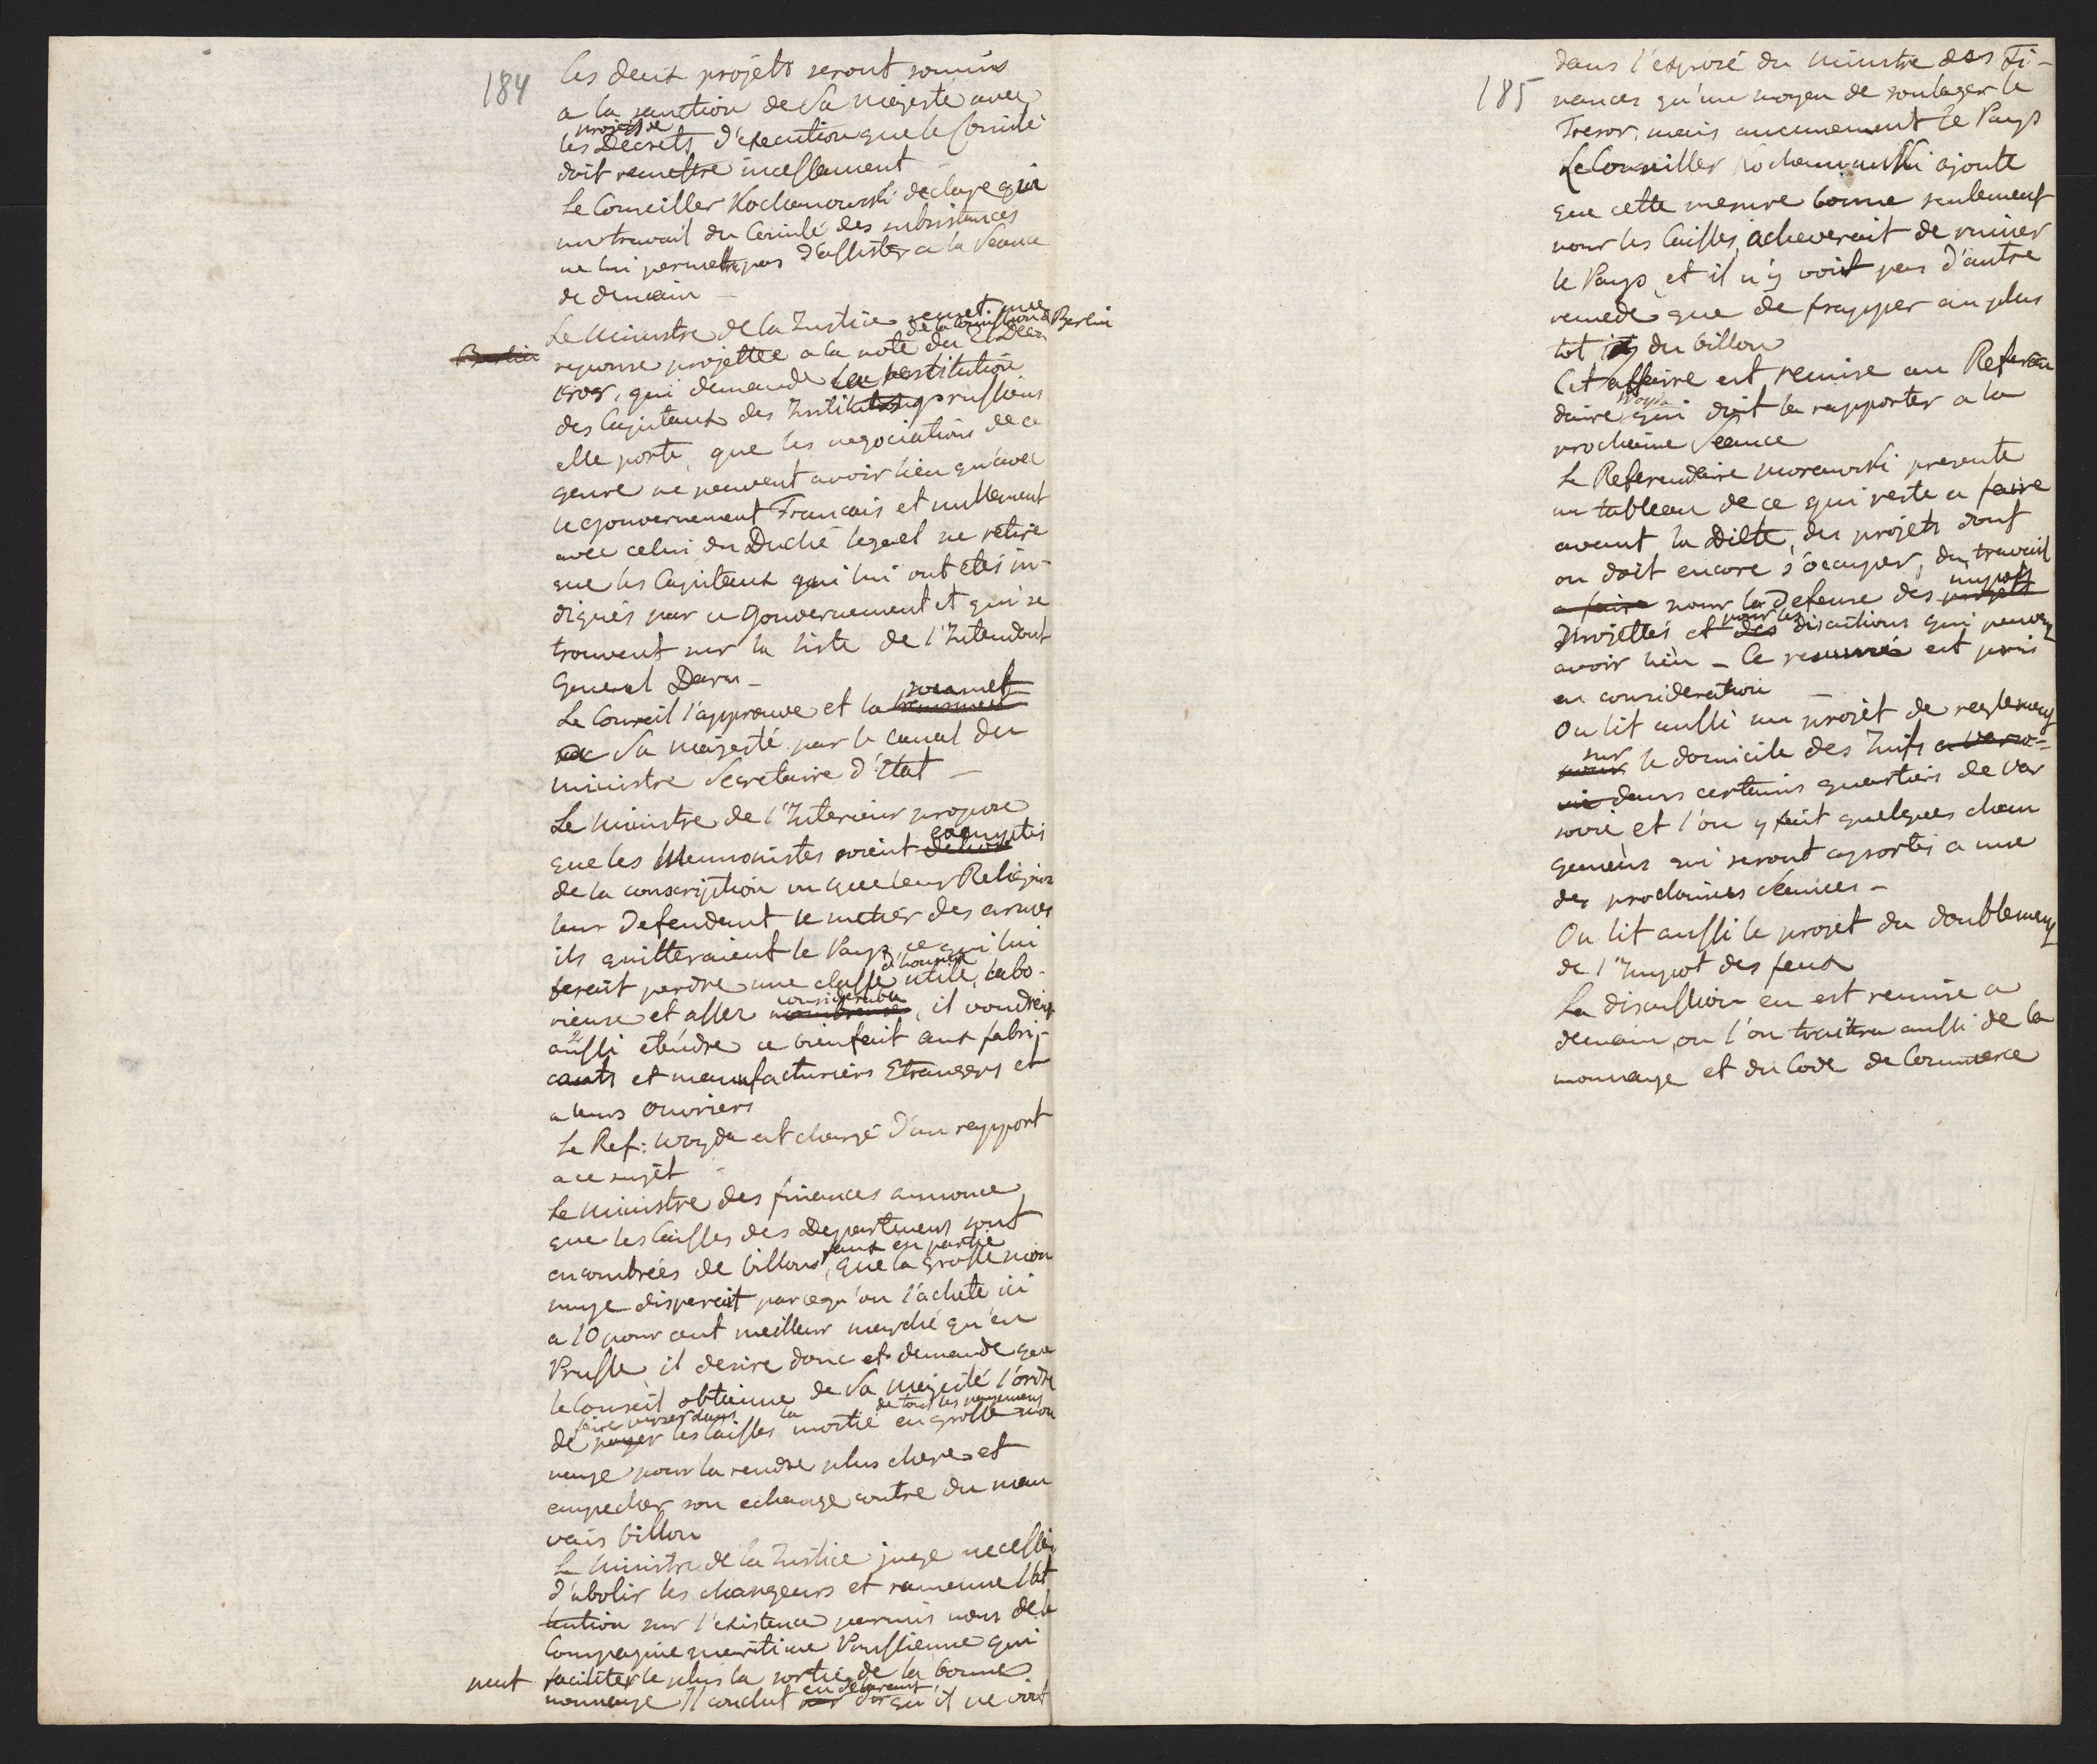 184
les deux projets seront soumis
a la sanction de Sa Majesté avec
projets de
les Decrets d'execution que le Comité
doit remettre incessament
Le Conseiller Kochanowski declare qu'un
un travail du Comité des subsistances
ne lui permettra pas d'assister a la Seance
de demain —
Le Ministre de la Justice remet une
de la Commission de Berlin
Berlin reponse projettée a la note du 2 Dec
1808, qui demande la restitution
des Capitaux des Instituts prussiens
elle porte, que les negociations de ce
genre ne peuvent avoir lieu qu'avec
le gouvernement Francais et nullement
avec celui du Duché lequel ne retire
que les Capitaux qui lui ont étés in-
diqués par ce Gouvernement et qui se
trouvent sur la liste de l'Intendant
General Daru —
soumet
Le Conseil l'approuve et la
a Sa Majesté par le canal du
Ministre Secretaire d'Etat —
Le Ministre de l'Interieur propose
exemptés
que les Mennonistes soient
de la conscription vu que leur Religion
leur defendant le metier des armes
ils quitteraient le Pays, ce qui lui
d'hommes
ferait perdre une classe utile, labo-
considerable
rieuse et assez nombreuse, il voudrait
aussi etendre ce bienfait aux fabri-
cants et manufacturiers Etrangers et
a leurs ouvriers
Le Ref: Woyda est chargé d'un rapport
a ce sujet
Le Ministre des finances annonce
que les Caisses des Departemens sont
faux en partie
encombrées de billons, que la grosse mon
naye disparait parcequ'on l'achete ici
a 10 pour cent meilleur marché qu'en
Prusse, il desire donc et demande que
le Conseil obtienne de Sa Majesté l'ordre
faire verser dans la de tous les payemens
de payer les Caisses moitié en grosse mon
naye pour la rendre plus chere et
empecher son echange contre du mau
vais billon
Le Ministre de la Justice juge necessaire
d'abolir les changeurs et ramenne l'at
tention sur l'existence parmis nous de la
Compagnie maritime Prussienne qui
peut faciliter le plus la sortie de la bonne
en declarant
monnaye Il conclut qu'il ne voit
185
dans l'exposé du Ministre des Fi-
nances qu'un moyen de soulager le
Tresor, mais aucunement le Pays
Le Conseiller Kochanowski ajoute
que cette mesure bonne seulement
pour les Caisses, acheverait de ruiner
le Pays, et il n'y voit pas d'autre
remede que de frapper au plus
tot du billon
Cet affaire est remise au Referen
Woyda
daire qui doit la rapporter a la
prochaine Seance
Le Referendaire Morawski presente
un tableau de ce qui reste a faire
avant la Diete, des projets dont
on doit encore s'occuper, du travail
impots
a faire pour la defense des projets
pour les
projettés et des discutions qui peuvent
avoir lieu — Ce resumé est pris
en consideration —
On lit aussi un projet de reglement
sur
pour le domicile des Juifs a Varso-
vie dans certains quartiers de Var
sovie et l'on y fait quelques chan
gemens qui seront aportés a une
des prochaines Seances —
On lit aussi le projet du doublement
de l'Impot des feux
La discussion en est remise a
demain, ou l'on traitera aussi de la
monnaye et du Code de Commerce